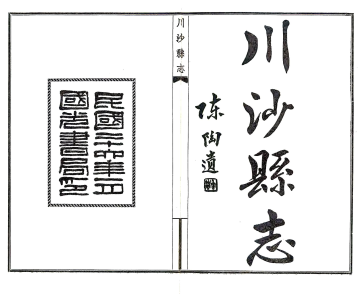 川沙縣志
陳陶遺
川沙縣志
民國二十六年
國光書局印